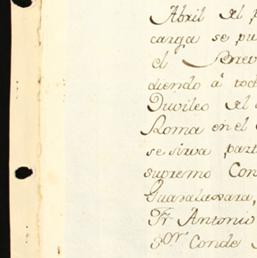 Abril del p
carga se pu
el Benev
diendo à tod
Duvileo del
Roma en el
se sirva part
supremo Con
Guadalaxara,
Fr. Antonio
Sor. Conde